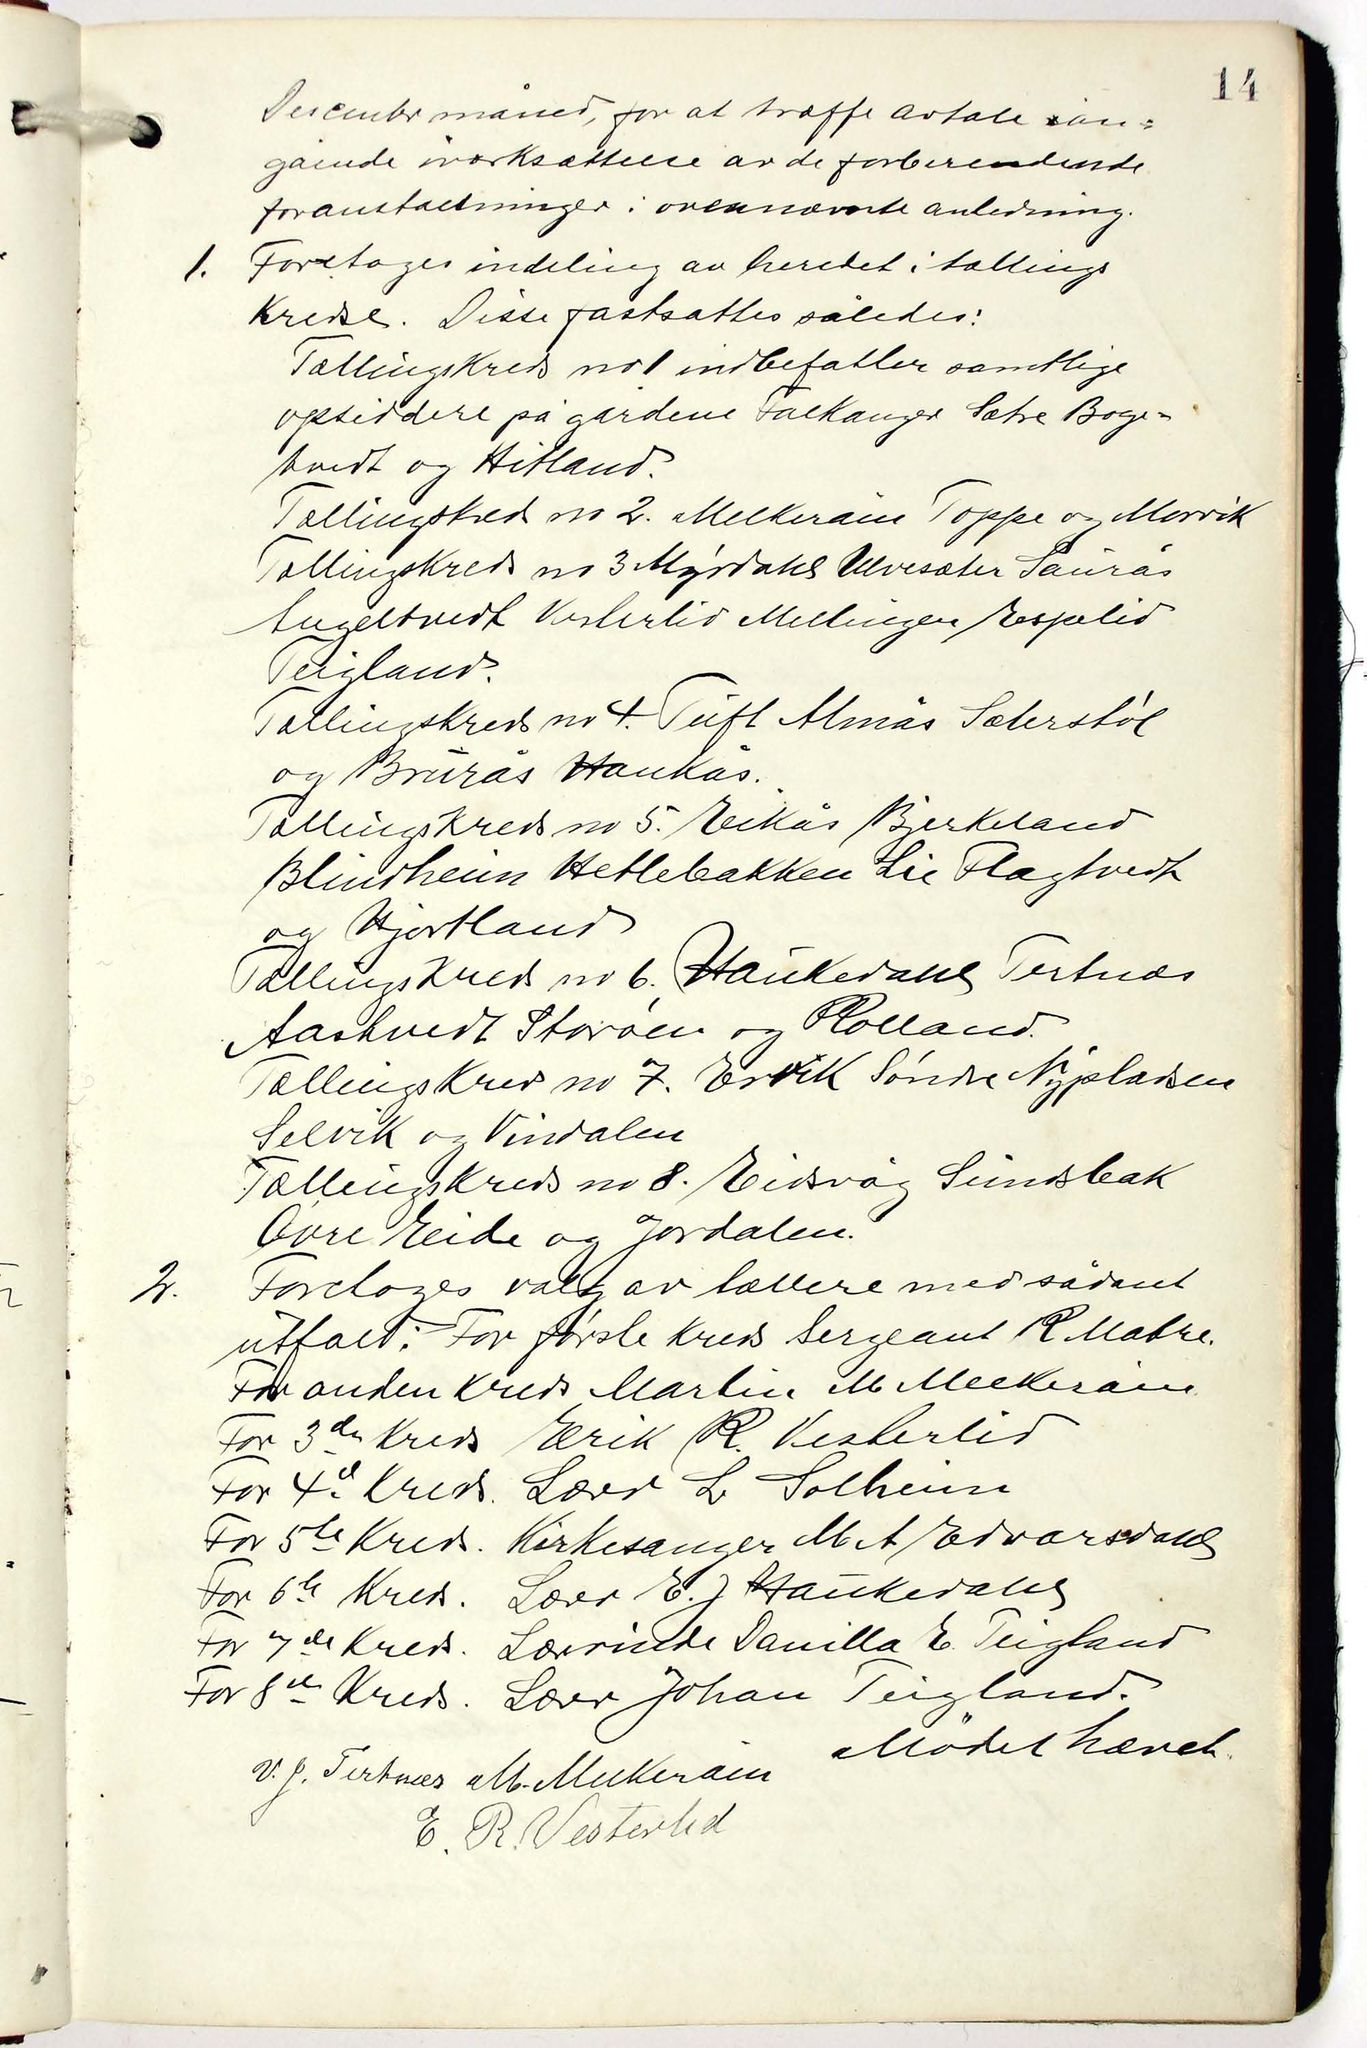 14
December måned, for at træffe avtale an-
gående iværksættelse av de forberedende
foranstaltninger i ovennævnte anledning.
1. Foretages inddeling av heredet i tællings
Kredse. Disse fastsattes således:
Tællingskreds no 1 indbefatter samtlige
opsiddere på gårdene Falkanger Sætre Boge-
tvedt og Hitland.
Tællingskreds no 2. Melkeråen Toppe og Morvik
Tællingskreds no 3 Myrdahl Ulvesæter Saurås
Tugeltvedt Vesterlid Mellingen Espelid
Teigland.
Tællingskreds no 4. Tuft Almås Sæterstøl
og Brurås Haukås.
Tællingskreds no 5. Eikås Bjerkeland
Blindheim Hetlebakken Lie Flagtvedt
og Hjortland
Tællingskreds no 6. Haukedahl Tertnæs
Aastvedt Storöen og Rolland.
Tællingskreds no 7. Ervik Söndre Nypladsen
Selvik og Vindalen
Tællingskreds no 8. Eidsvåg Sundsbak
Övre Eide og Jordalen.
2. Foretages valg av tællere med sådant
utfald: For første kreds Sergeant R Matre.
For anden kreds Martin M Melkeråen
For 3die Kreds Erik R. Vesterlid
For 4de Kreds. Lærer L Solheim
For 5te Kreds. Kirkesanger M A Edvarsdahl
For 6te Kreds. Lærer E. J Haukedahl
For 7de Kreds. Lærerinde Danilla E. Teigland
For 8de Kreds. Lærer Johan Teigland.
Mødet hævet.
V. J. Tertnæs M. Melkeråen
E. R. Vesterlid